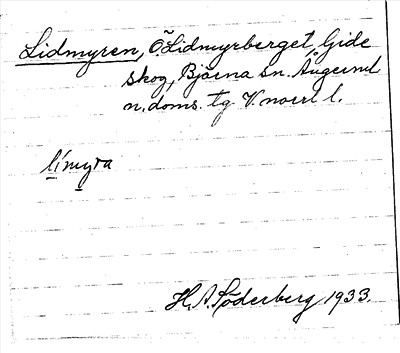 Lidmyren, Ö. Lidmyrberget, Gide
skog, Björna sn. Ångerml
n. doms. tg V. norrl l.
límyra
H. A. Söderberg 1933.